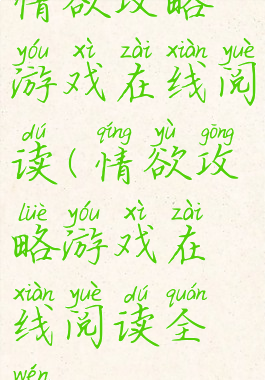 情欲攻略
yóu xì zài xiàn yuè
游戏在线阅
dú qíng yù gōng
读(情欲攻
lüè yóu xì zài
略游戏在
xiàn yuè dú quán
线阅读全
wén